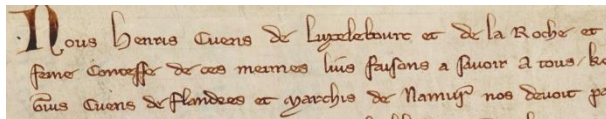 Nous henris Cuens de Luxelebourc et de la Roche et
feme Contesse de ces meimes lius faisons a savoir a tous ke
Cuens de flandres et marchis de Namur nos devoit